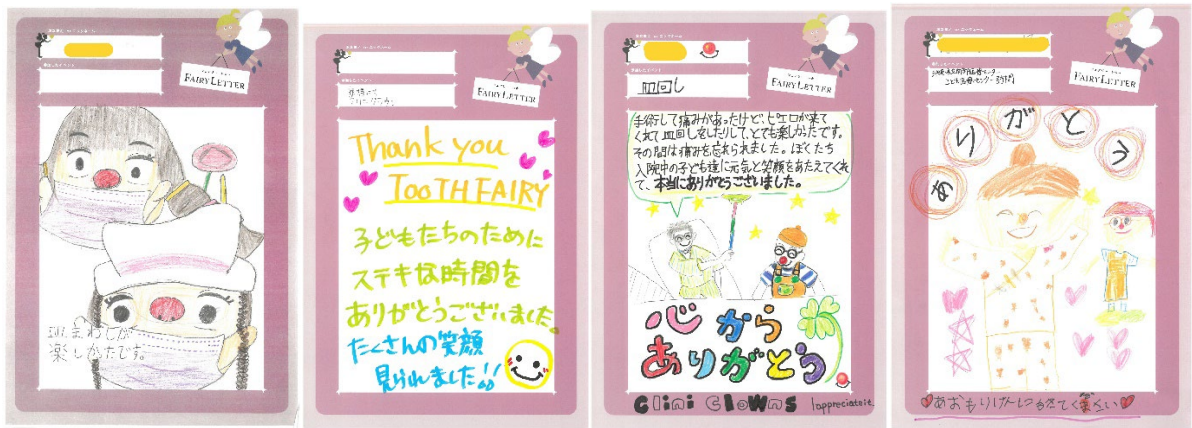 FAIRY LETTER
皿まわしが
楽しかったです。
FAIRY LETTER
Thank you
TOOTH FAIRY
子どもたちのために
ステキな時間を
ありがとうございました。
たくさんの笑顔
見られました!!
FAIRY LETTER
皿回し
手術して痛みがあったけど、ヒゲロが来て
くれて皿回しをしたりして、とても楽しかったです。
その間は痛みを忘れられました。ぼくたち
入院中の子ども達に元気と笑顔をあたえてくれ
て、本当にありがとうございました。
心から
ありがとう
Clini Clowns I appreciate it.
FAIRY LETTER
ありがとう
あおもりけんにもきてください